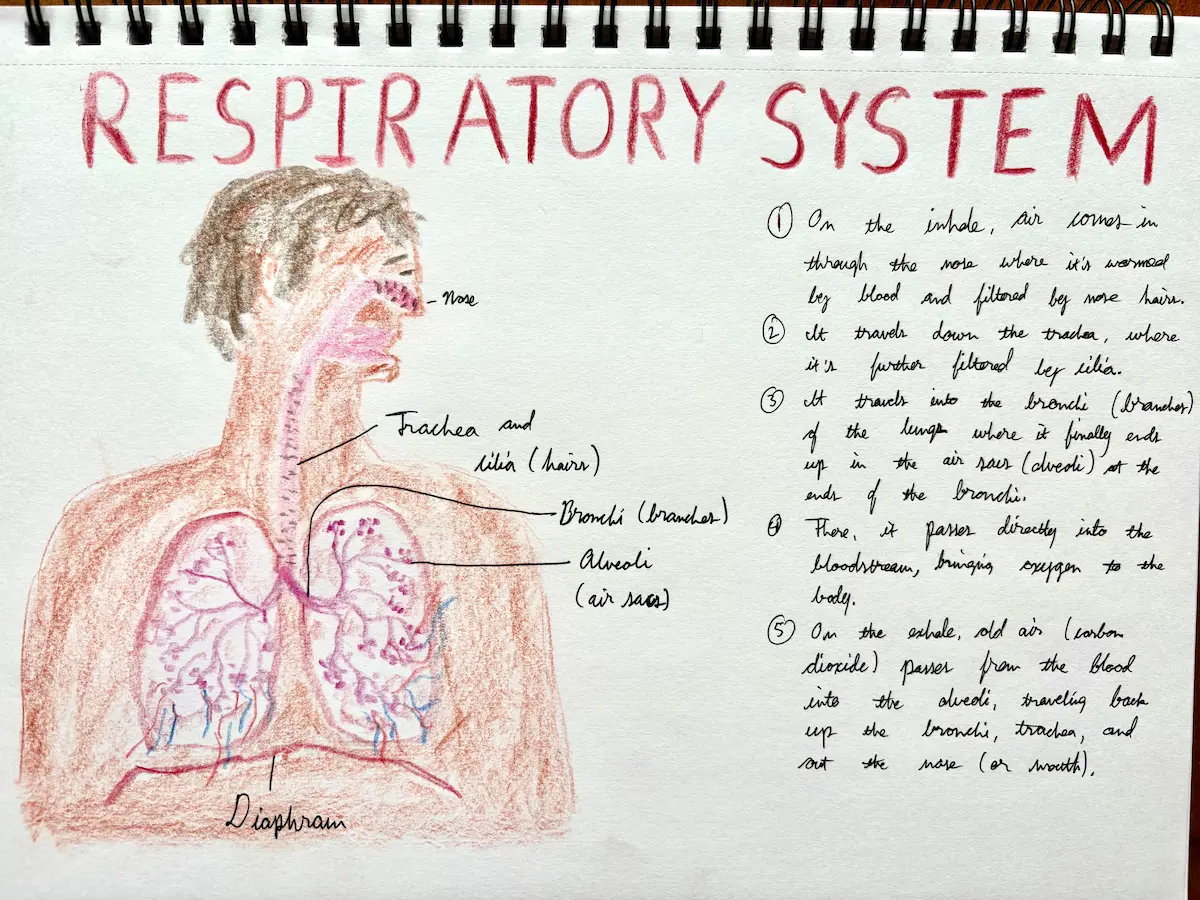 RESPIRATORY SYSTEM
Nose
Trachea and
cilia (hairs)
Bronchi (branches)
Alveoli
(air sacs)
Diaphram
① On the inhale, air comes in
through the nose where it's warmed
by blood and filtered by nose hairs.
② It travels down the trachea, where
it's further filtered by cilia.
③ It travels into the bronchi (branches)
of the lungs where it finally ends
up in the air sacs (alveoli) at the
ends of the bronchi.
④ There, it passes directly into the
bloodstream, bringing oxygen to the
body.
⑤ On the exhale, old air (carbon
dioxide) passes from the blood
into the alveoli, traveling back
up the bronchi, trachea, and
out the nose (or mouth).